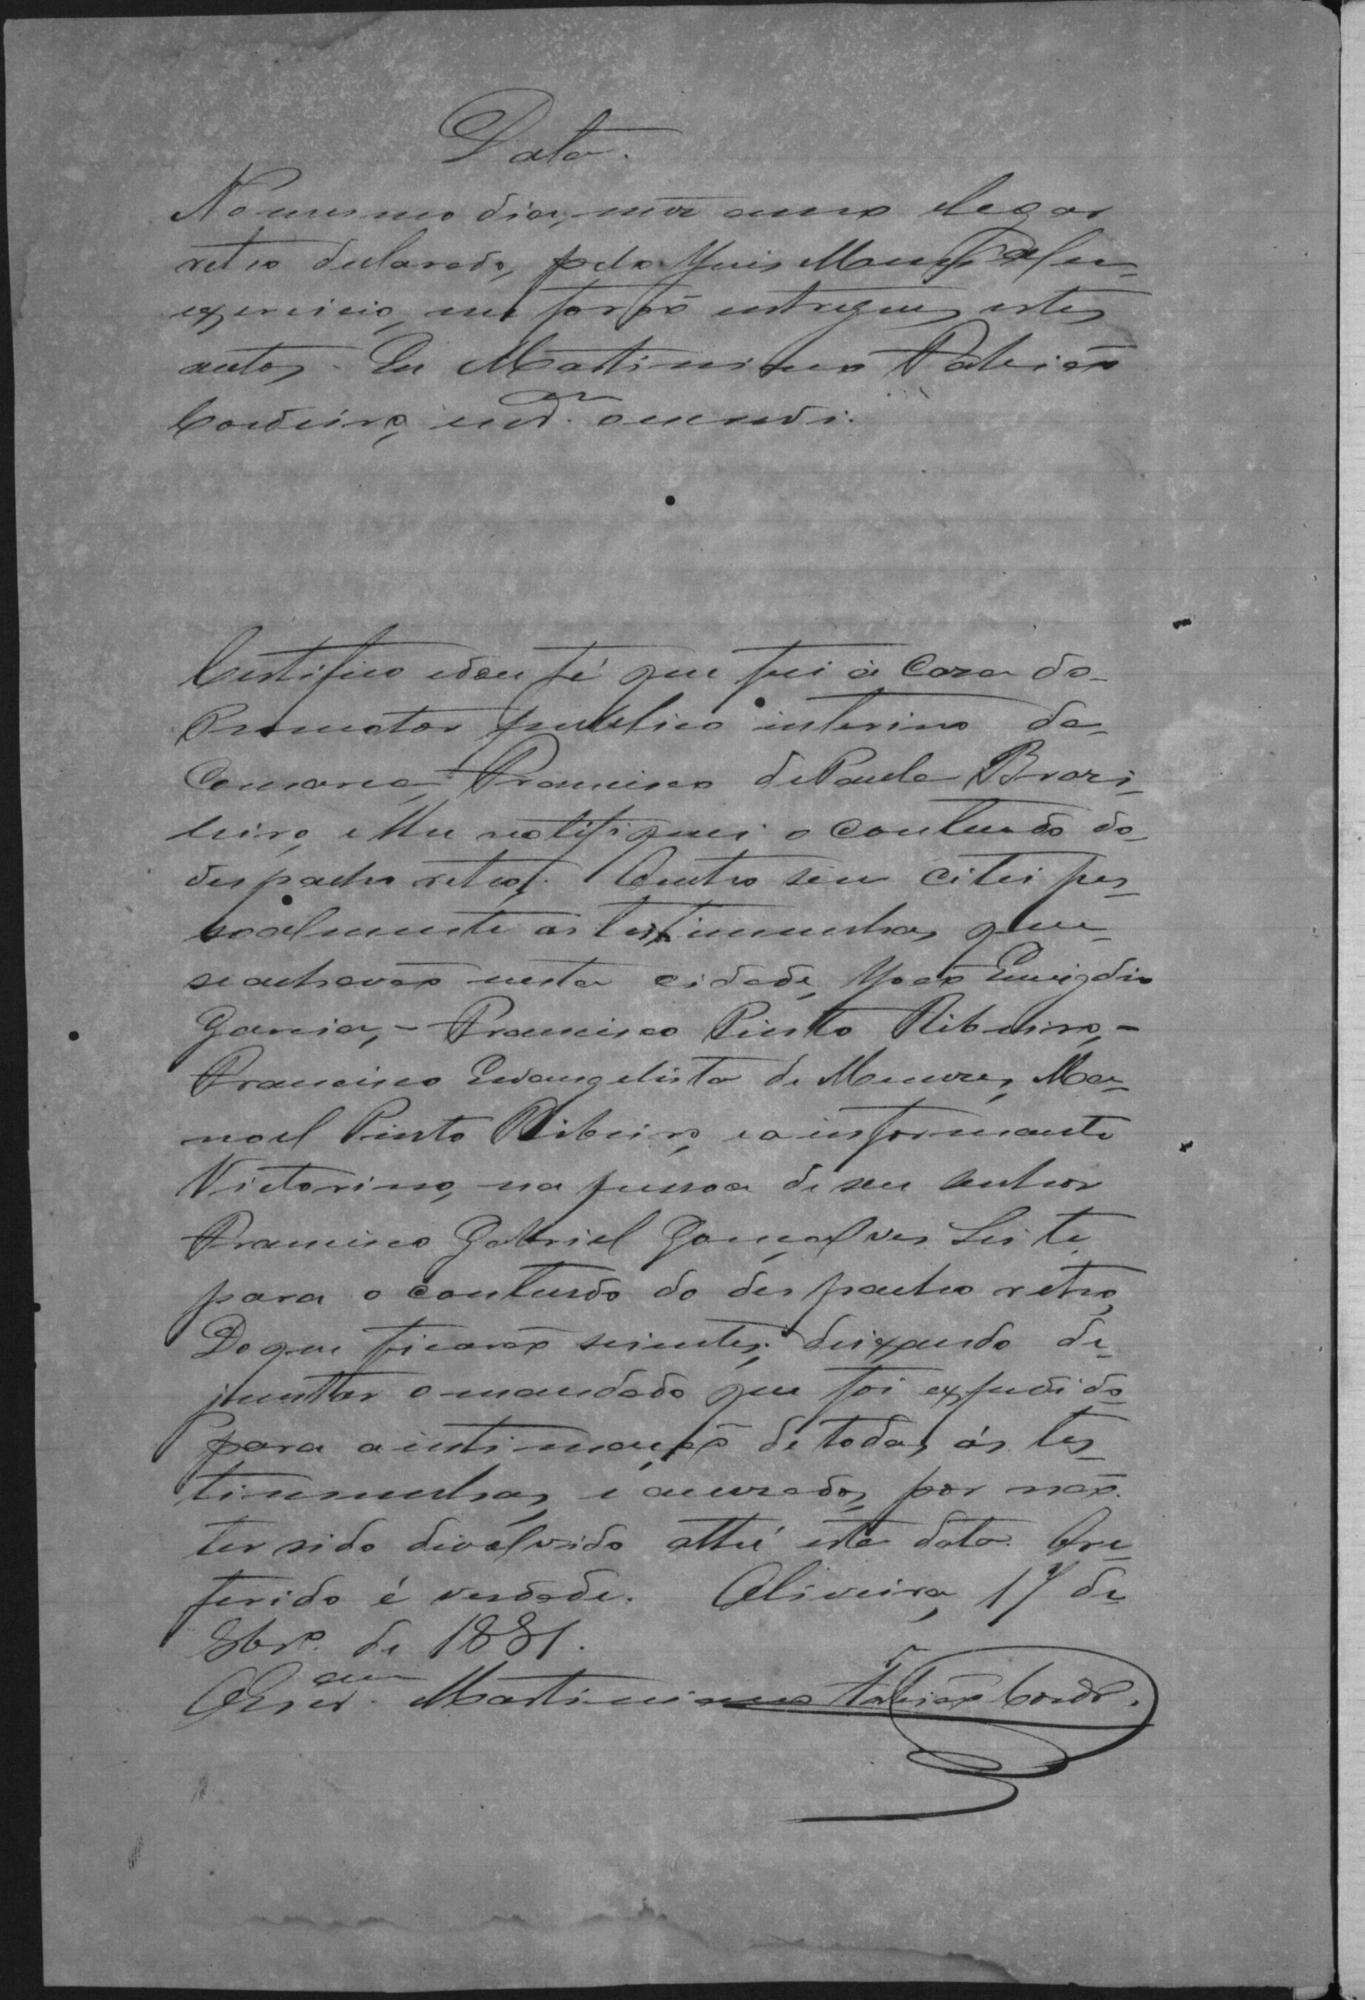 Data.
No mesmo dia, mez anno e lugar
retro declarado, pelo Juis Mun.al em
exercicio, me forão entregues estes
autos. Eu Martiniano Fabião
Cordeiro, escr.am o escrevi.
Certifico e dou fé que fui á Caza do
Promotor publico interino da
Comarca Francisco de Paula Brazi-
leiro, e lhe notifiquei o conteudo do
despacho retro. Outro sim citei pes-
soalmente as testimunhas que
se achavão nesta cidade, João Emigdio
Garcia, - Francisco Pinto Ribeiro, -
Francisco Evangelista de Menezes, Ma-
noel Pinto Ribeiro, e o informante
Victorino, na pessoa de seu senhor
Francisco Gabriel Gonçalves Leite
para o conteudo do despacho retro,
Do que ficarão scientes; deixando de
juntar o mandado que foi expedido
para a intimação de todas ás tes-
timunhas, e acuzados, por não
ter sido divolvido athé esta data. O re-
ferido é verdade. Oliveira, 17 de
8br.o de 1881.
O Escr.am Martiniano Fabião Cordr.o